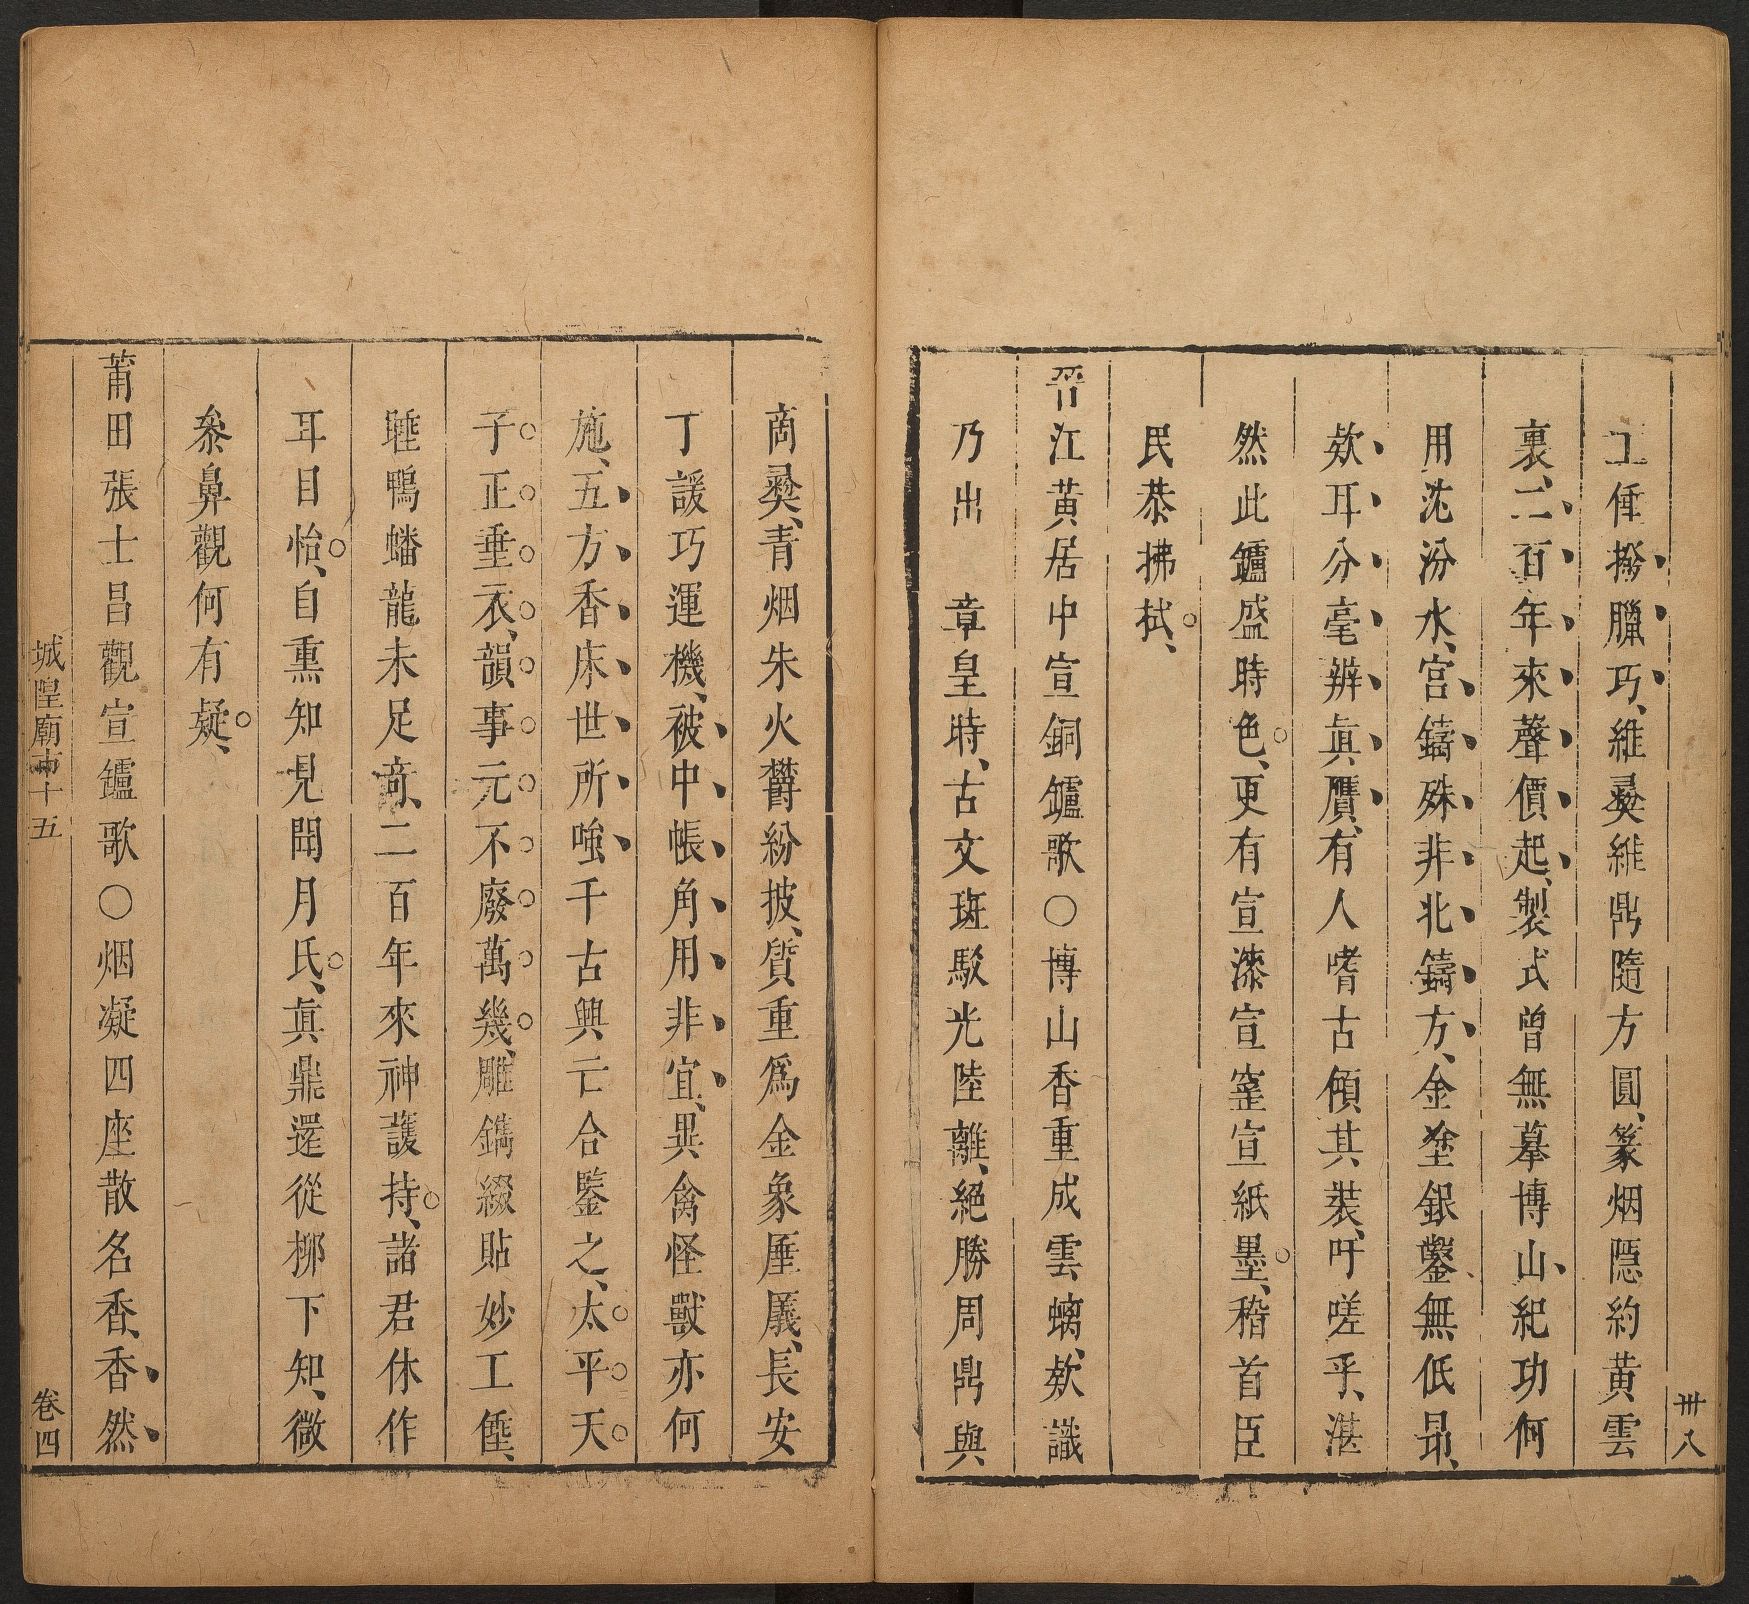 工倕撥臘巧維彝維鼎隨方圓篆烟隱約黃雲
裏二百年來聲價起製式曾無摹博山紀功何
用沈汾水宮鑄殊非北鑄方金塗銀鏨無低昻
欵耳分毫辨眞贋有人嗜古傾其裝吁嗟乎湛
然此鑪盛時色更有宣漆宣窰宣紙墨稽首臣
民恭拂拭
晉江黃居中宣銅鑪歌○博山香重成雲螭欵識
乃出章皇時古文斑駁光陸離絕勝周鼎與
卅八
商彝青烟朱火欝紛披質重爲金象厜㕒長安
丁諼巧運機被中帳角用非宜異禽怪獸亦何
施五方香床世所嗤千古興亡合鑒之太平天
子正垂衣韻事元不廢萬幾雕鐫綴貼妙工倕
睡鴨蟠龍未足竒二百年來神護持諸君休作
耳目怡自熏知見聞月氏眞鼎還從柳下知微
叅鼻觀何有疑
莆田張士昌觀宣鑪歌○烟凝四座散名香香然
城隍廟市十五
卷四